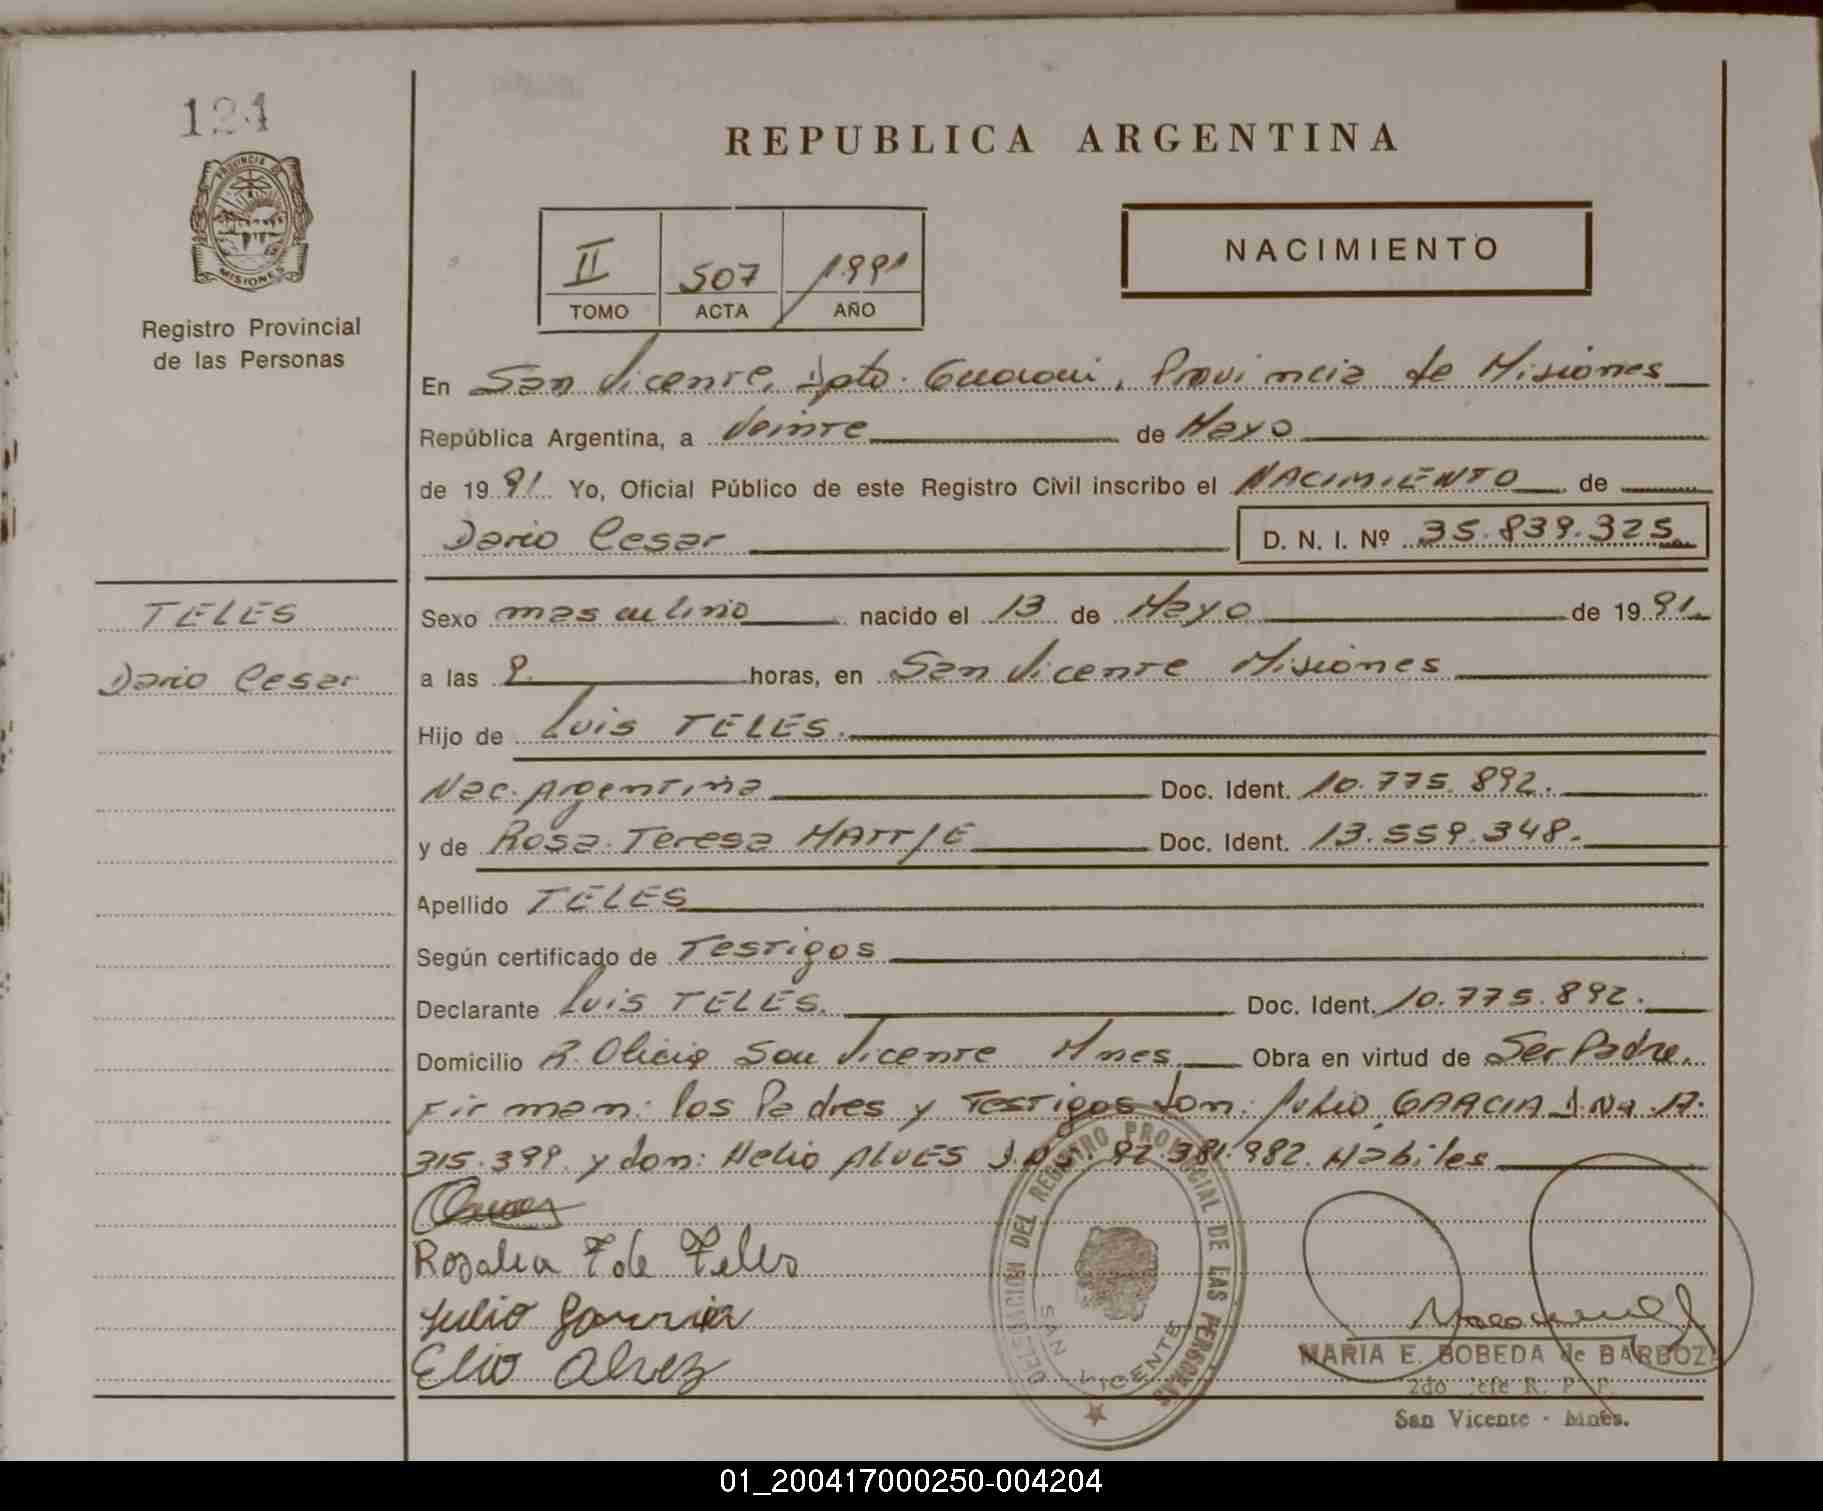 124
PROVINCIA DE
MISIONES
Registro Provincial
de las Personas
REPUBLICA ARGENTINA
II 507 1991
TOMO ACTA AÑO
NACIMIENTO
En San Vicente, Dpto. Guarani, Provincia de Misiones
República Argentina, a Veinte de Mayo
de 1991. Yo, Oficial Público de este Registro Civil inscribo el NACIMIENTO de
Dario Cesar D. N. I. Nº 35.839.325
TELES
Dario Cesar
Sexo masculino nacido el 13 de Mayo de 1991.
a las horas, en San Vicente Misiones
Hijo de Luis TELES.
Nac. Argentina Doc. Ident. 10.775.892.
y de Rosa Teresa Doc. Ident. 13.559.348.
Apellido TELES
Según certificado de Testigos
Declarante Luis TELES. Doc. Ident. 10.775.892.
Domicilio San Vicente Mnes. Obra en virtud de Ser Padre.
Firman: los Padres y Testigos Don: Julio GARCIA
315.399. y don: Helio ALVES 92.381.982. Hábiles
Rosalia T de Teles
Julio
Elio Alvez
DELEGACION DEL REGISTRO PROVINCIAL DE LAS PERSONAS
SAN VICENTE
MARIA E. BOBEDA de BARBOZA
2do Jefe R. P. P.
San Vicente - Mnes.
01_200417000250-004204